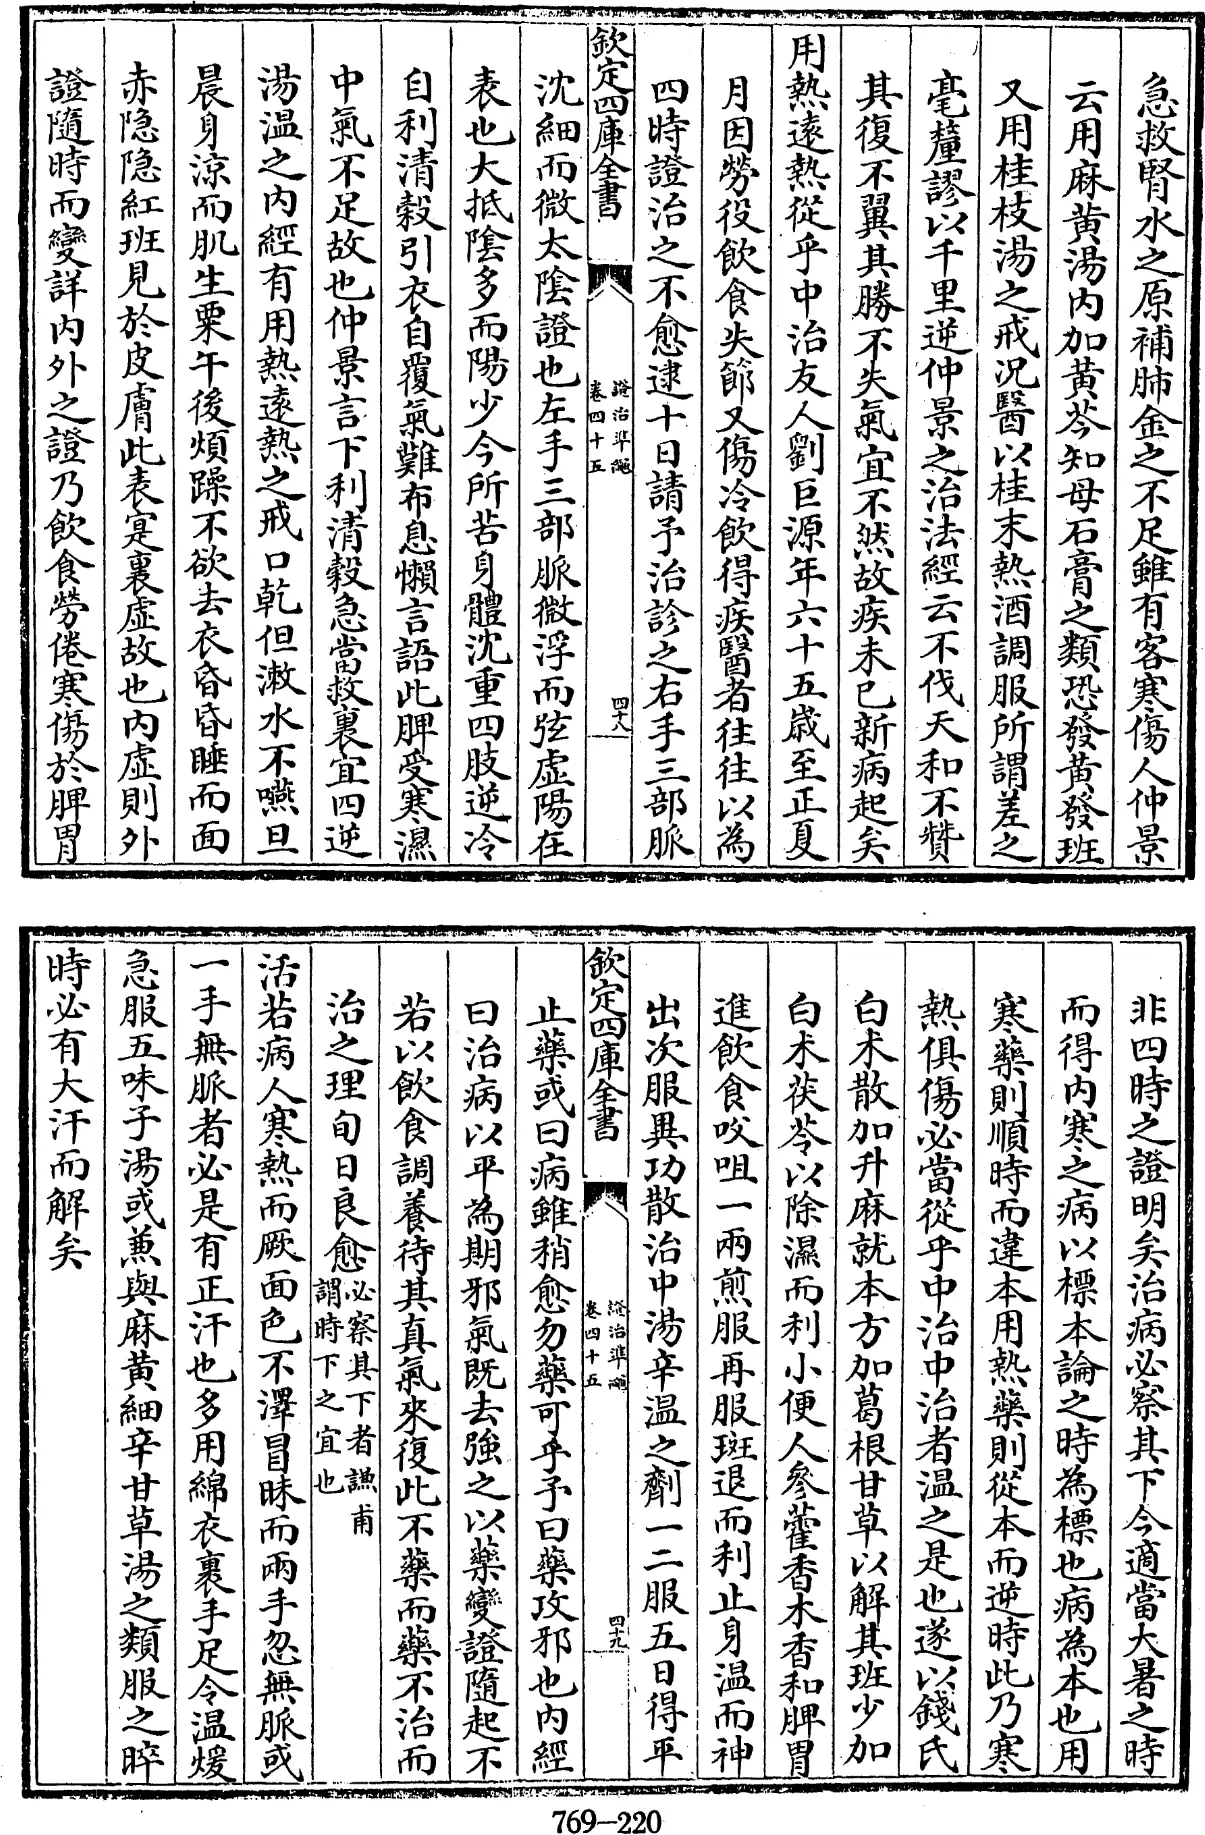 急救腎水之原補肺金之不足雖有客寒傷人仲景
云用麻黄湯内加黄芩知母石膏之類恐發黄發班
又用桂枝湯之戒況醫以桂末熱酒調服所謂差之
毫釐謬以千里逆仲景之治法經云不伐天和不贊
其復不翼其勝不失氣宜不然故疾未已新病起矣
用熱遠熱從乎中治友人劉巨源年六十五歲至正夏
月因勞役飲食失節又傷冷飲得疾醫者往往以為
四時證治之不愈逮十日請予治診之右手三部脈
欽定四庫全書
證治準繩
卷四十五
四十八
沈細而微太陰證也左手三部脈微浮而弦虛陽在
表也大抵陰多而陽少今所苦身體沈重四肢逆冷
自利清穀引衣自覆氣難布息懶言語此脾受寒濕
中氣不足故也仲景言下利清穀急當救裏宜四逆
湯温之内經有用熱遠熱之戒口乾但漱水不嚥旦
晨身涼而肌生粟午後煩躁不欲去衣昏昏睡而面
赤隐隐紅班見於皮膚此表寔裏虛故也内虛則外
證隨時而變詳内外之證乃飲食勞倦寒傷於脾胃
非四時之證明矣治病必察其下今適當大暑之時
而得内寒之病以標本論之時為標也病為本也用
寒藥則順時而違本用熱藥則從本而逆時此乃寒
熱俱傷必當從乎中治中治者温之是也遂以錢氏
白术散加升麻就本方加葛根甘草以解其班少加
白术茯苓以除濕而利小便人參藿香木香和脾胃
進飲食㕮咀一兩煎服再服斑退而利止身温而神
出次服異功散治中湯辛温之劑一二服五日得平
欽定四庫全書
證治準繩
卷四十五
四十九
止藥或曰病雖稍愈勿藥可乎予曰藥攻邪也内經
曰治病以平為期邪氣既去強之以藥變證隨起不
若以飲食調養待其真氣來復此不藥而藥不治而
治之理旬日良愈必察其下者謙甫謂時下之宜也
活若病人寒熱而厥面色不澤冒昧而兩手忽無脈或
一手無脈者必是有正汗也多用綿衣裹手足令温煖
急服五味子湯或兼與麻黄細辛甘草湯之類服之晬
時必有大汗而解矣
769-220